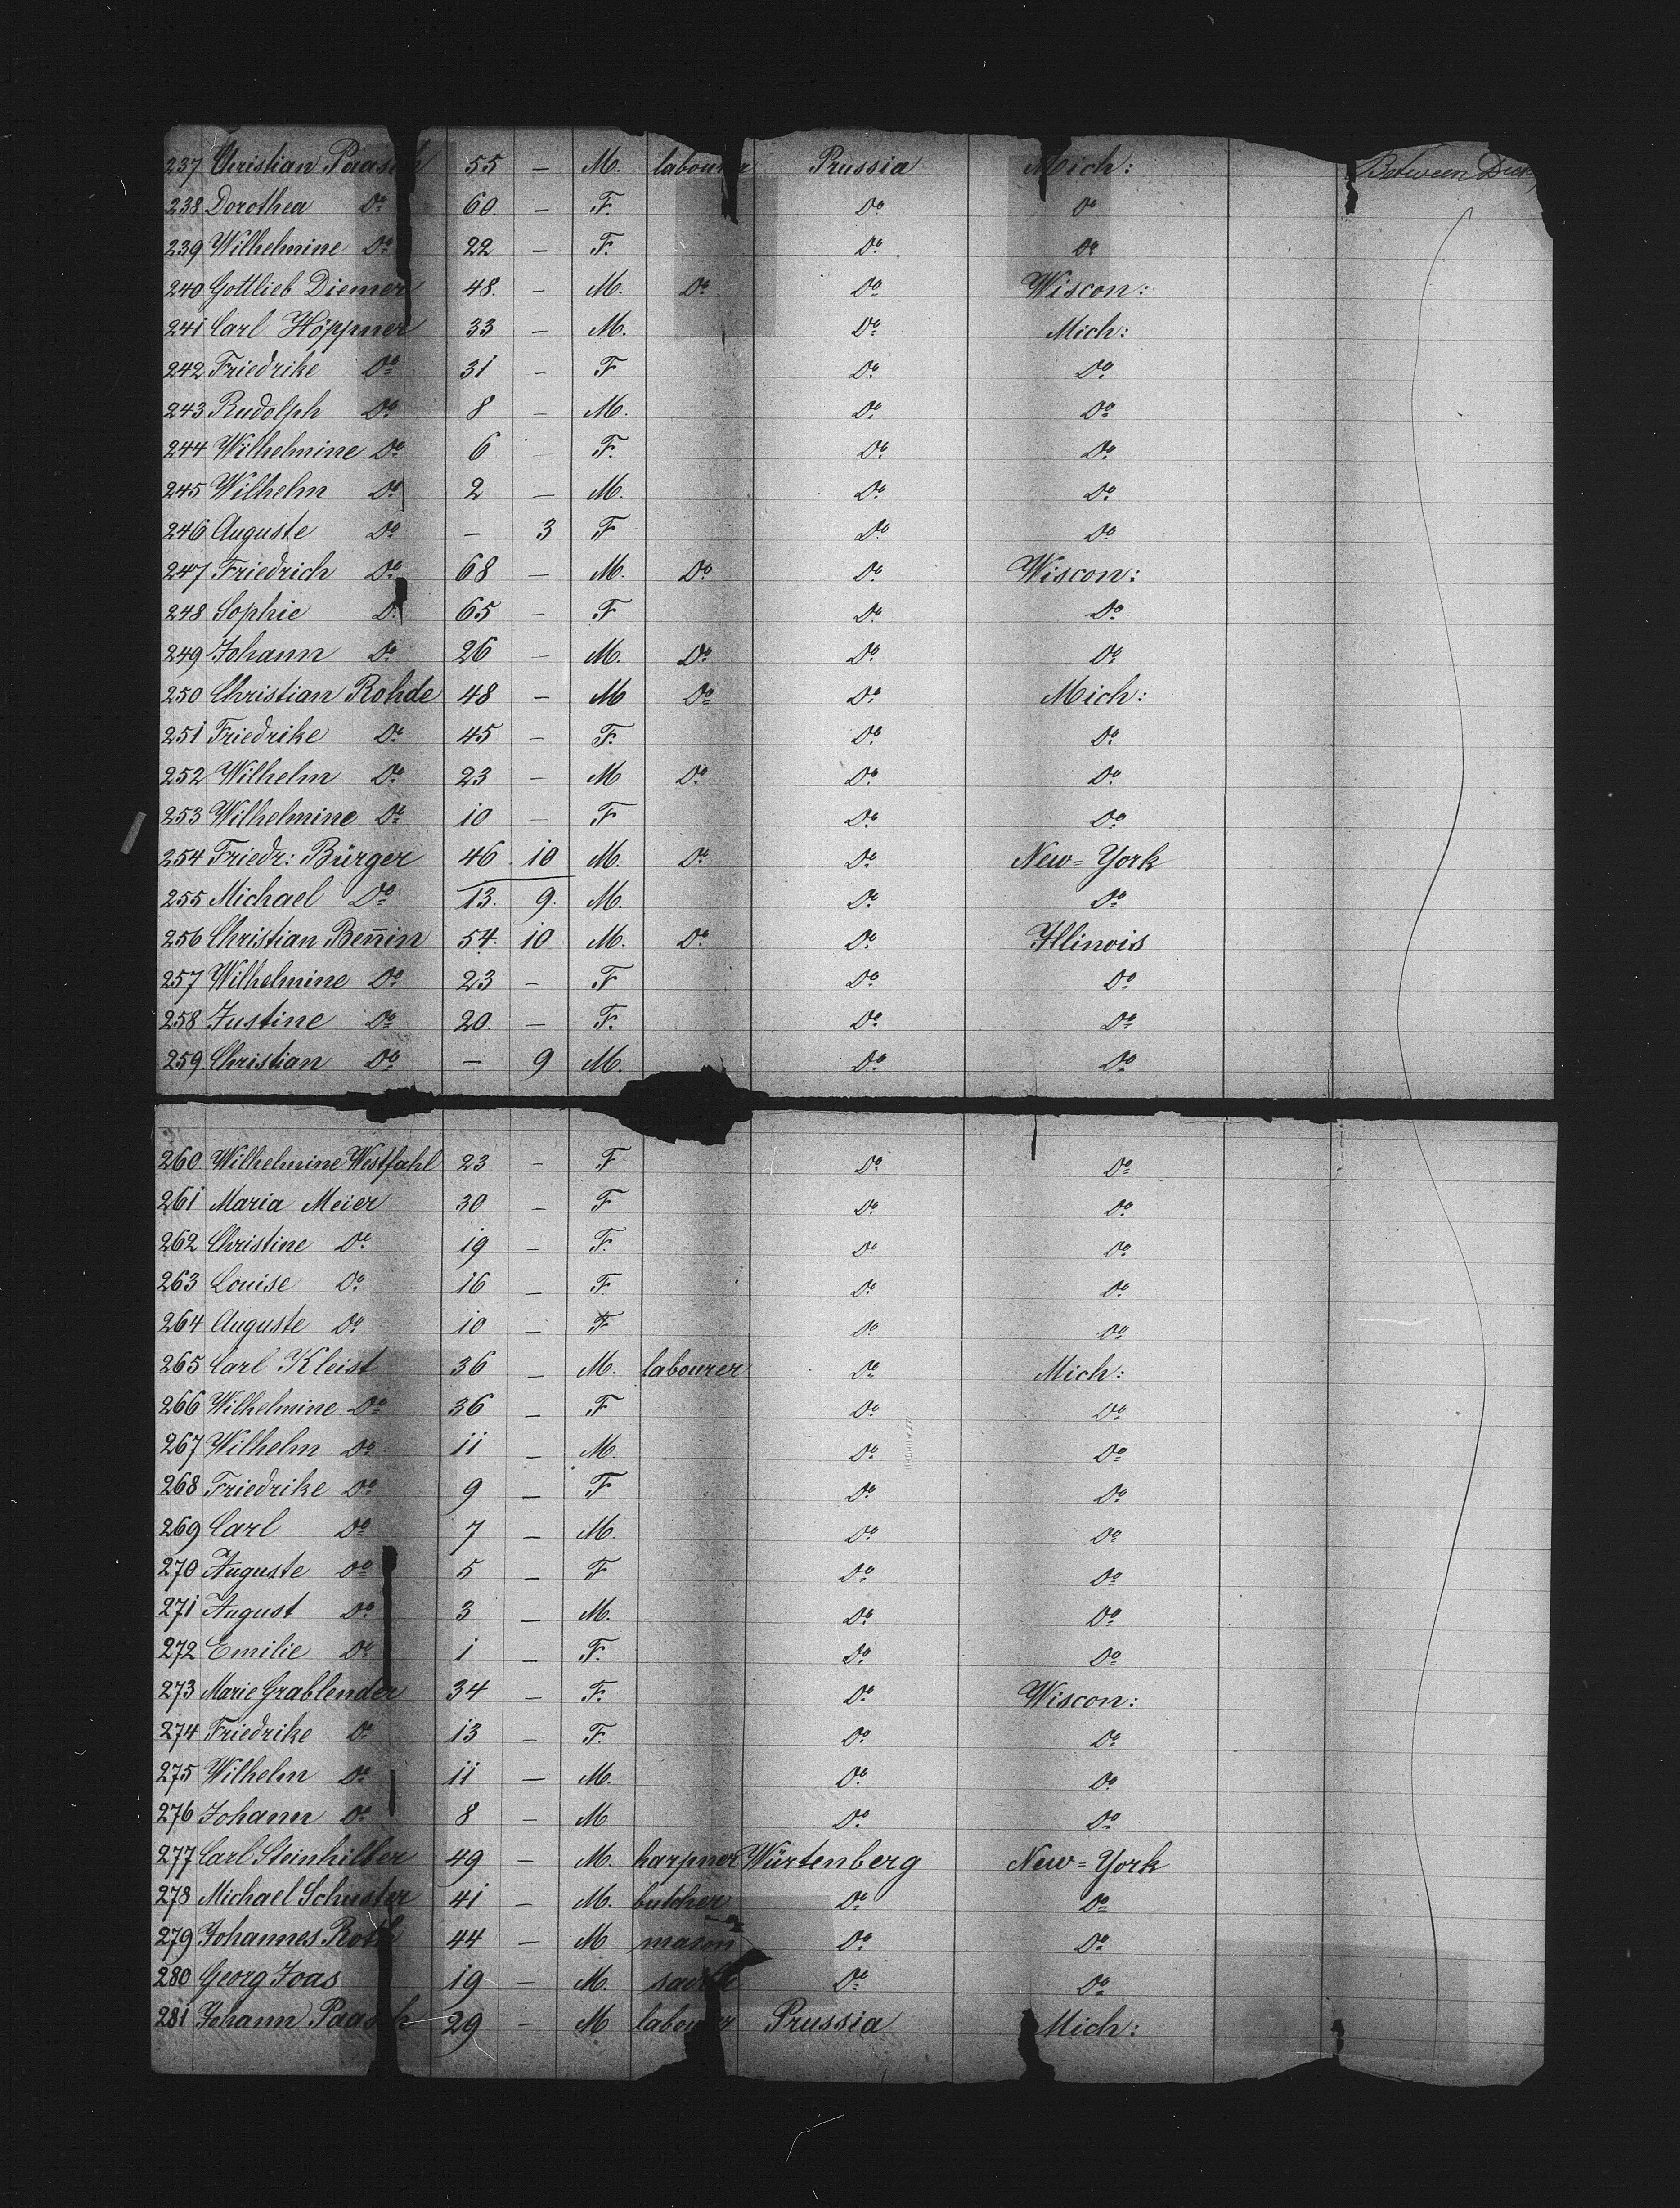 237 Christian Paasch 55 — M. labourer Prussia Mich: Between Deck
238 Dorothea Do 60. — F. Do Do
239 Wilhelmine Do 22 — F. Do Do
240 Gottlieb Diemer 48. — M. Do Do Wiscon:
241 Carl Höppner 33 — M. Do Mich:
242 Friedrike Do 31 — F Do Do
243 Rudolph Do 8 — M. Do Do
244 Wilhelmine Do 6 — F. Do Do
245 Wilhelm Do 2 — M. Do Do
246 Auguste Do — 3 F Do Do
247 Friedrich Do 68 — M. Do Do Wiscon:
248 Sophie Do 65 — F Do Do
249 Johann Do 26 — M. Do Do Do
250 Christian Rohde 48 — M Do Do Mich:
251 Friedrike Do 45 — F. Do Do
252 Wilhelm Do 23 — M Do Do Do
253 Wilhelmine Do 10 — F Do Do
254 Friedr: Bürger 46 10 M. Do Do New=York
255 Michael Do 13. 9. M. Do Do
256 Christian Ben̄in 54. 10 M. Do Do Illinois
257 Wilhelmine Do 23 — F Do Do
258 Justine Do 20. — F. Do Do
259 Christian Do — 9 M. Do Do
260 Wilhelmine Westfahl 23 — F Do Do
261 Maria Meier 30 — F Do Do
262 Christine Do 19 — F. Do Do
263 Louise Do 16 — F. Do Do
264 Auguste Do 10 — F Do Do
265 Carl Kleist 36 — M. labourer Do Mich:
266 Wilhelmine Do 36 — F Do Do
267 Wilhelm Do 11 — M. Do Do
268 Friedrike Do 9 — F Do Do
269 Carl Do 7 — M. Do Do
270 Auguste Do 5 — F Do Do
271 August Do 3 — M. Do Do
272 Emilie Do 1 — F. Do Do
273 Marie Grablender 34 — F. Do Wiscon:
274 Friedrike Do 13 — F. Do Do
275 Wilhelm Do 11 — M. Do Do
276 Johann Do 8 — M Do Do
277 Carl Steinhilber 49 — M. harpner Würtenberg New=York
278 Michael Schuster 41 — M. butcher Do Do
279 Johannes Roth 44 — M mason Do Do
280 Georg Joas 19 — M. Do Do
281 Johann Paasch 29 — M labourer Prussia Mich: